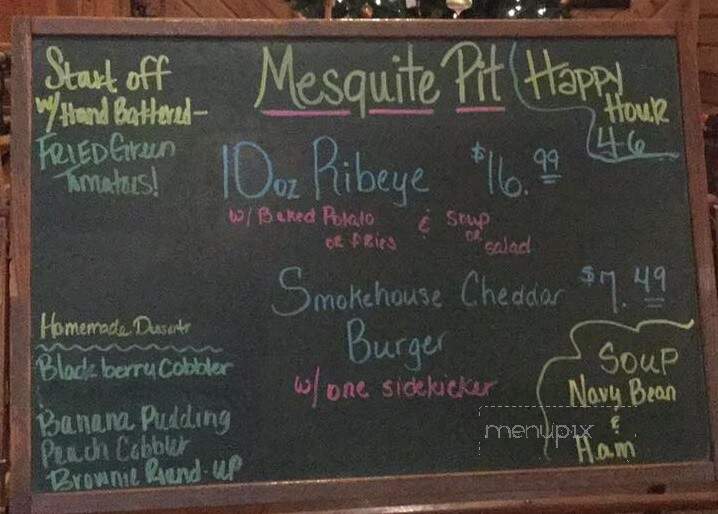 Start off
w/ Hand Battered-
FRIED Green
Tomatoes!
Mesquite Pit
Happy
Hour
4-6
10oz Ribeye $16.99
w/ Baked Potato & Soup
or fries or
salad
Smokehouse Cheddar $7.49
Burger
w/ one sidekicker
Homemade Desserts
Blackberry Cobbler
Banana Pudding
Peach Cobbler
Brownie Round-up
Soup
Navy Bean
&
Ham
menupix